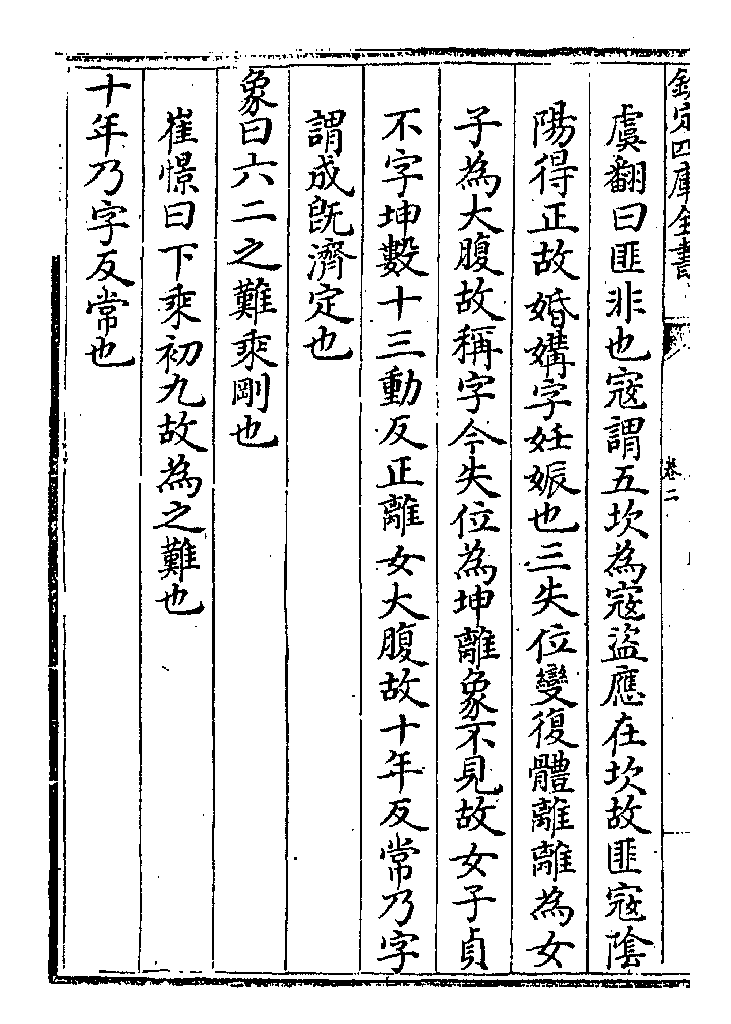 欽定四庫全書
卷二
虞翻曰匪非也寇謂五坎為寇盜應在坎故匪寇陰
陽得正故婚媾字妊娠也三失位變復體離離為女
子為大腹故稱字今失位為坤離象不見故女子貞
不字坤數十三動反正離女大腹故十年反常乃字
謂成旣濟定也
象曰六二之難乘剛也
崔憬曰下乘初九故為之難也
十年乃字反常也